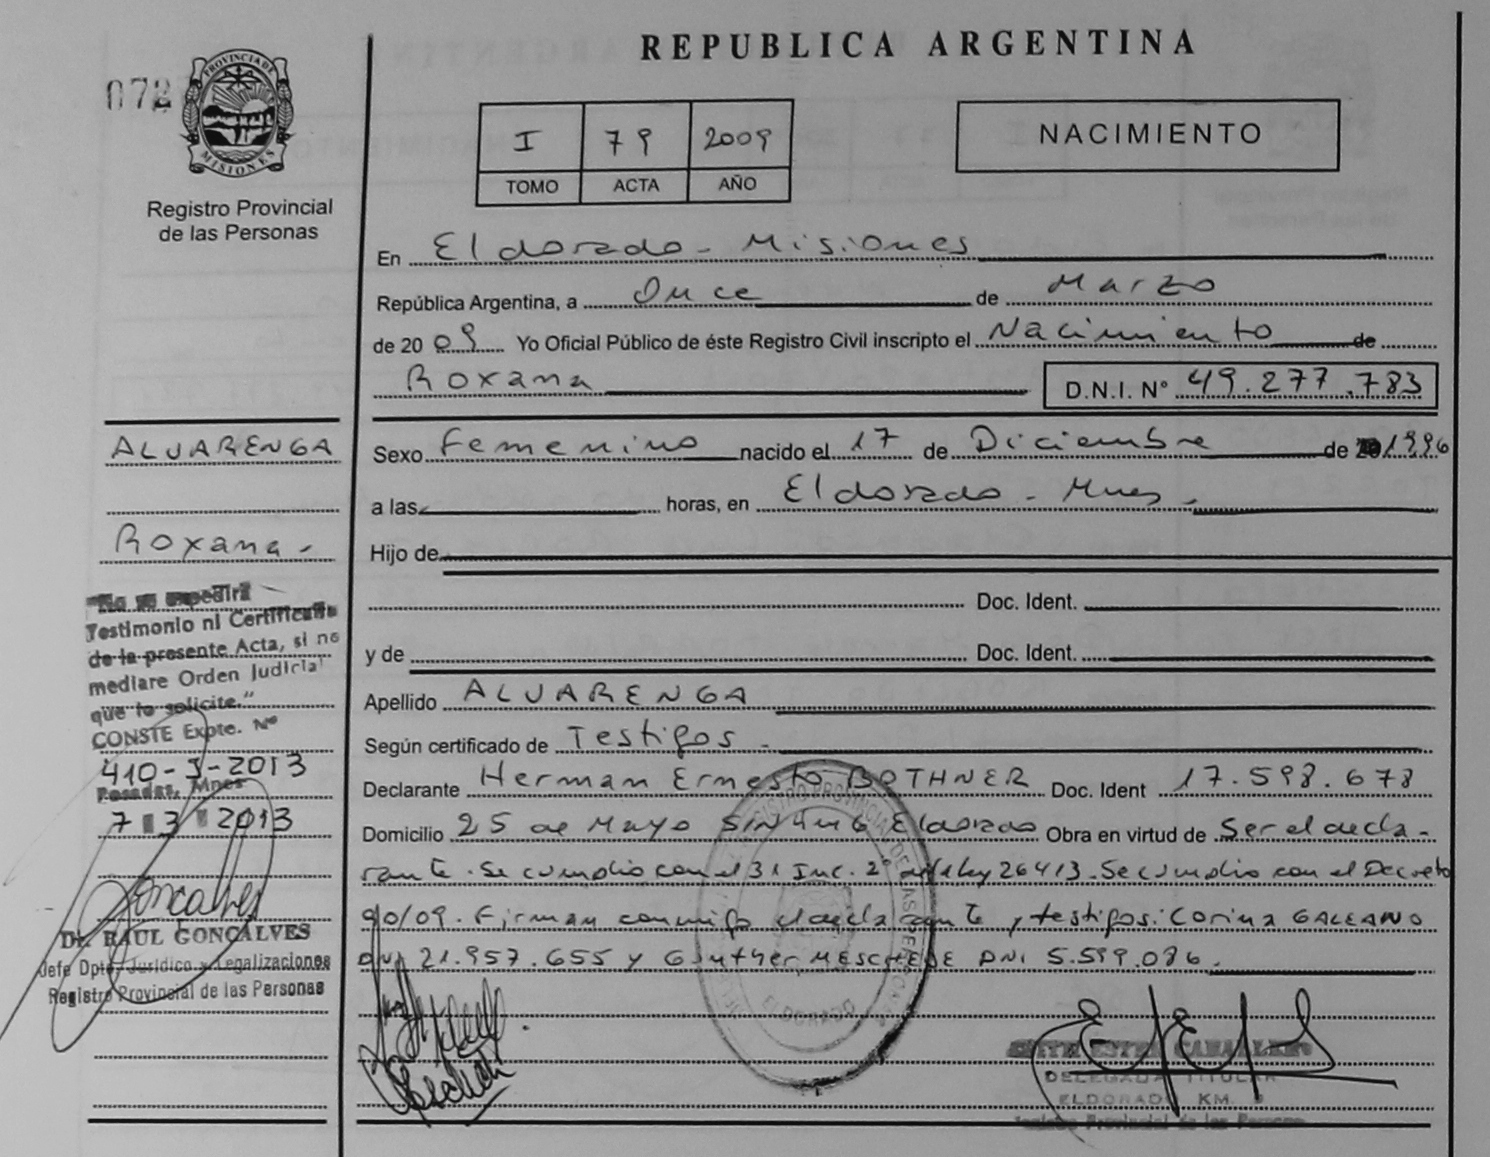 REPUBLICA ARGENTINA
072
PROVINCIA DE
MISIONES
Registro Provincial
de las Personas
I 79 2009
TOMO ACTA AÑO
NACIMIENTO
En Eldorado - Misiones
República Argentina, a Once de Marzo
de 20 09 Yo Oficial Público de éste Registro Civil inscripto el Nacimiento de
Roxana D.N.I. N° 49.277.783
ALVARENGA
Roxana -
Sexo Femenino nacido el 17 de Diciembre de 1996
a las horas, en Eldorado - Mnes -
Hijo de
Doc. Ident.
y de Doc. Ident.
Apellido ALVARENGA
Según certificado de Testigos -
Declarante Herman Ernesto BOTHNER Doc. Ident 17.598.678
Domicilio 25 de Mayo S/N Eldorado Obra en virtud de Ser el decla-
rante. Se cumplio con el 31 Inc. 2° ley 26413. Se cumplio con el Decreto
90/09. Firman conmigo declarante y testigos: Corina GALEANO
DNI 21.957.655 y Gunther MESCHEDE DNI 5.599.086.
"No se expedirá
Testimonio ni Certificado
de la presente Acta, si no
mediare Orden Judicial
que lo solicite."
CONSTE Expte. N°
410-J-2013
Posadas, Mnes
7 3 2013
Dr. RAUL GONÇALVES
Jefe Dpto. Jurídico y Legalizaciones
Registro Provincial de las Personas
REGISTRO PROVINCIAL DE LAS PERSONAS
ELDORADO
DELEGADA TITULAR
ELDORADO KM. 9
Registro Provincial de las Personas